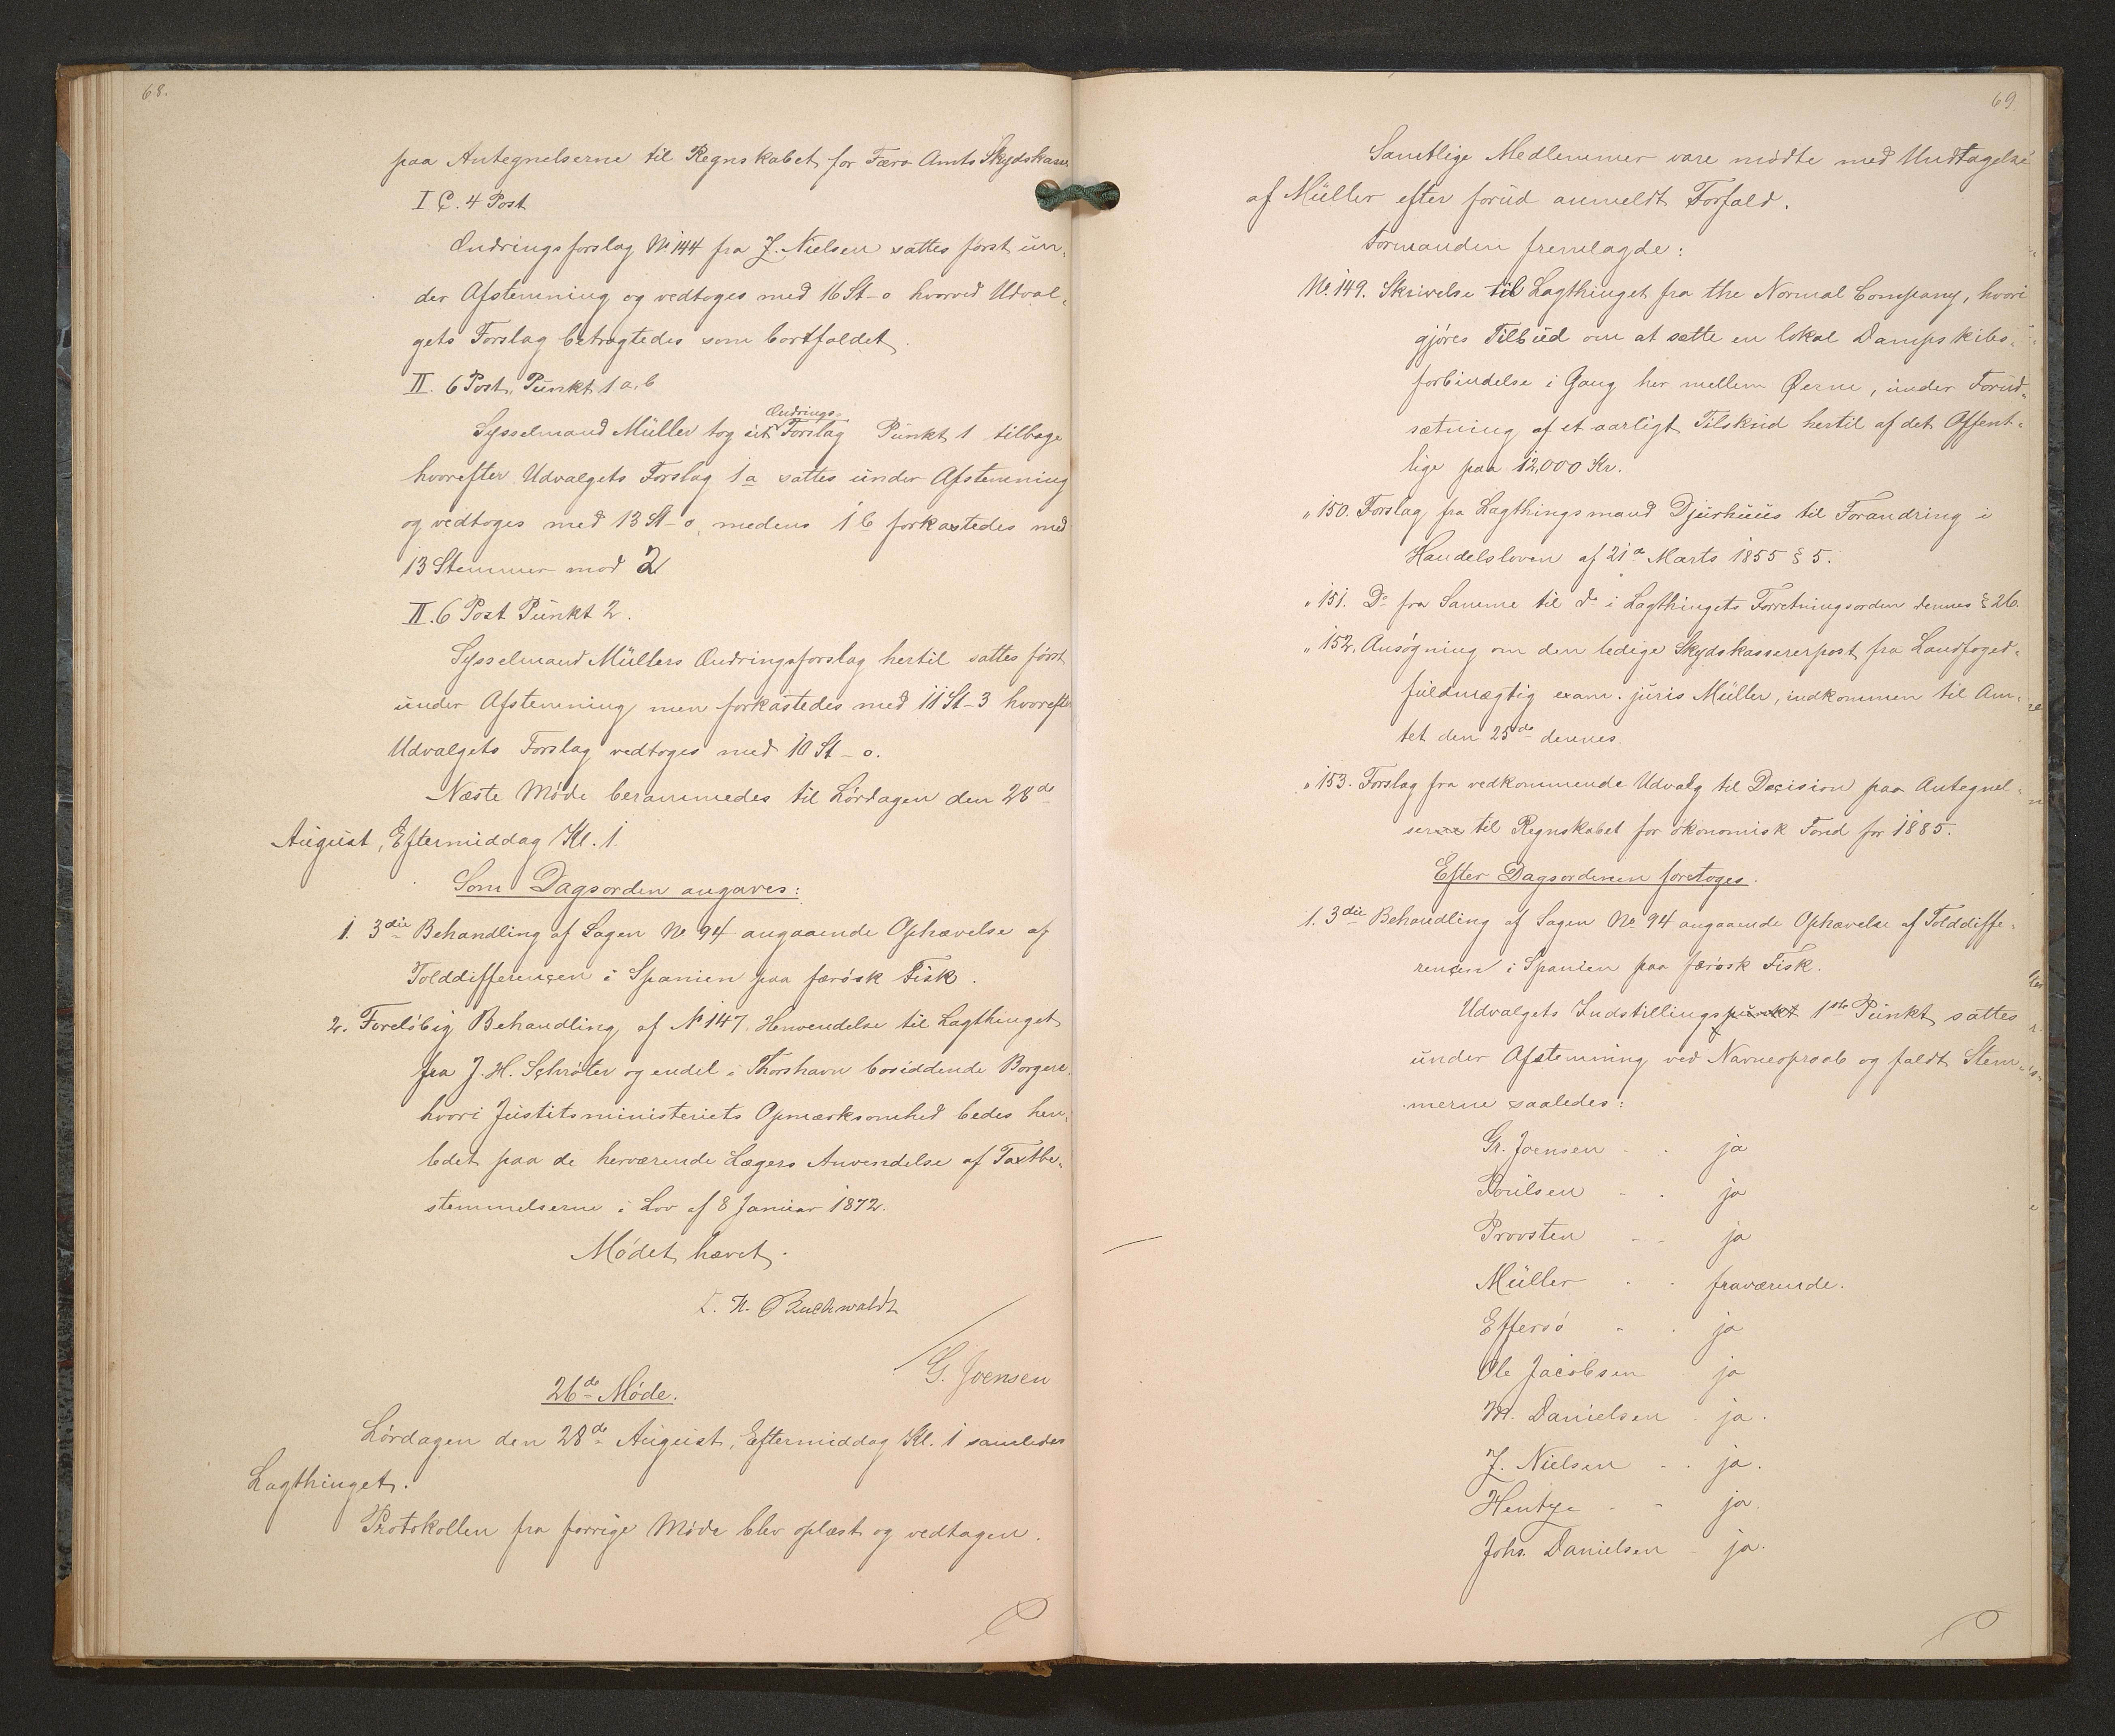 68.
paa Antegnelserne til Regnskabet for Færø Amts Skydskasse
I C. 4 Post
Ændringsforslag № 144 fra J. Nielsen sattes først un-
der Afstemning og vedtoges med 16 St – o hvorved Udval-
gets Forslag betragtedes som bortfaldet.
II. 6 Post, Punkt 1 a. b
Ændrings-
Sysselmand Müller tog sit Forslag Punkt 1 tilbage
hvorefter Udvalgets Forslag 1a sattes under Afstemning
og vedtoges med 13 St – o, medens 1 b forkastedes med
13 Stemmer mod 2
II. 6 Post Punkt 2.
Sysselmand Müllers Ændringsforslag hertil sattes først
under Afstemning men forkastedes med 11 St – 3 hvorefter
Udvalgets Forslag vedtoges med 10 St – o.
Næste Møde berammedes til Lørdagen den 28de
August, Eftermiddag Kl. 1.
Som Dagsorden angaves:
1. 3die Behandling af Sagen № 94 angaaende Ophævelse af
Tolddifferencen i Spanien paa færøsk Fisk.
2. Foreløbig Behandling af № 147. Henvendelse til Lagthinget
fra J. H. Schrøter og endel i Thorshavn bosiddende Borgere,
hvori Justitsministeriets Opmærksomhed bedes hen-
ledet paa de herværende Lægers Anvendelse af Taxtbe-
stemmelserne i Lov af 8 Januar 1872.
Mødet hævet.
N. Buchwaldt
G. Joensen
26de Møde.
Lørdagen den 28de August, Eftermiddag Kl. 1 samledes
Lagthinget.
Protokollen fra forrige Møde blev oplæst og vedtagen.
69.
Samtlige Medlemmer vare mødte med Undtagelse
af Müller efter forud anmeldt Forfald.
Formanden fremlagde:
№ 149. Skrivelse til Lagthinget fra the Normal Company, hvori
gjøres Tilbud om at sætte en lokal Dampskibs-
forbindelse i Gang her mellem Øerne, under Forud-
sætning af et aarligt Tilskud hertil af det Offent-
lige paa 12,000 Kr.
" 150. Forslag fra Lagthingsmand Djurhuus til Forandring i
Handelsloven af 21de Marts 1855 § 5.
" 151. Do fra Samme til do i Lagthingets Forretningsorden dennes § 26.
" 152. Ansøgning om den ledige Skydskassererpost fra Landfoged-
fuldmægtig exam. juris Müller, indkommen til Am-
tet den 25de dennes.
" 153. Forslag fra vedkommende Udvalg til Decision paa Antegnel-
serne til Regnskabet for økonomisk Fond for 1885.
Efter Dagsordenen foretoges.
1. 3die Behandling af Sagen № 94 angaaende Ophævelse af Tolddiffe-
rencen i Spanien paa færøsk Fisk.
Udvalgets Indstillings punkt 1ste Punkt sattes
under Afstemning ved Navneopraab og faldt Stem-
merne saaledes:
Gr. Joensen - - ja
Poulsen - - ja
Provsten - - ja
Müller - - fraværende.
Effersø - - ja
Ole Jacobsen ja
M. Danielsen - ja.
J. Nielsen - - ja.
Hentze - - ja.
Johs. Danielsen - ja.